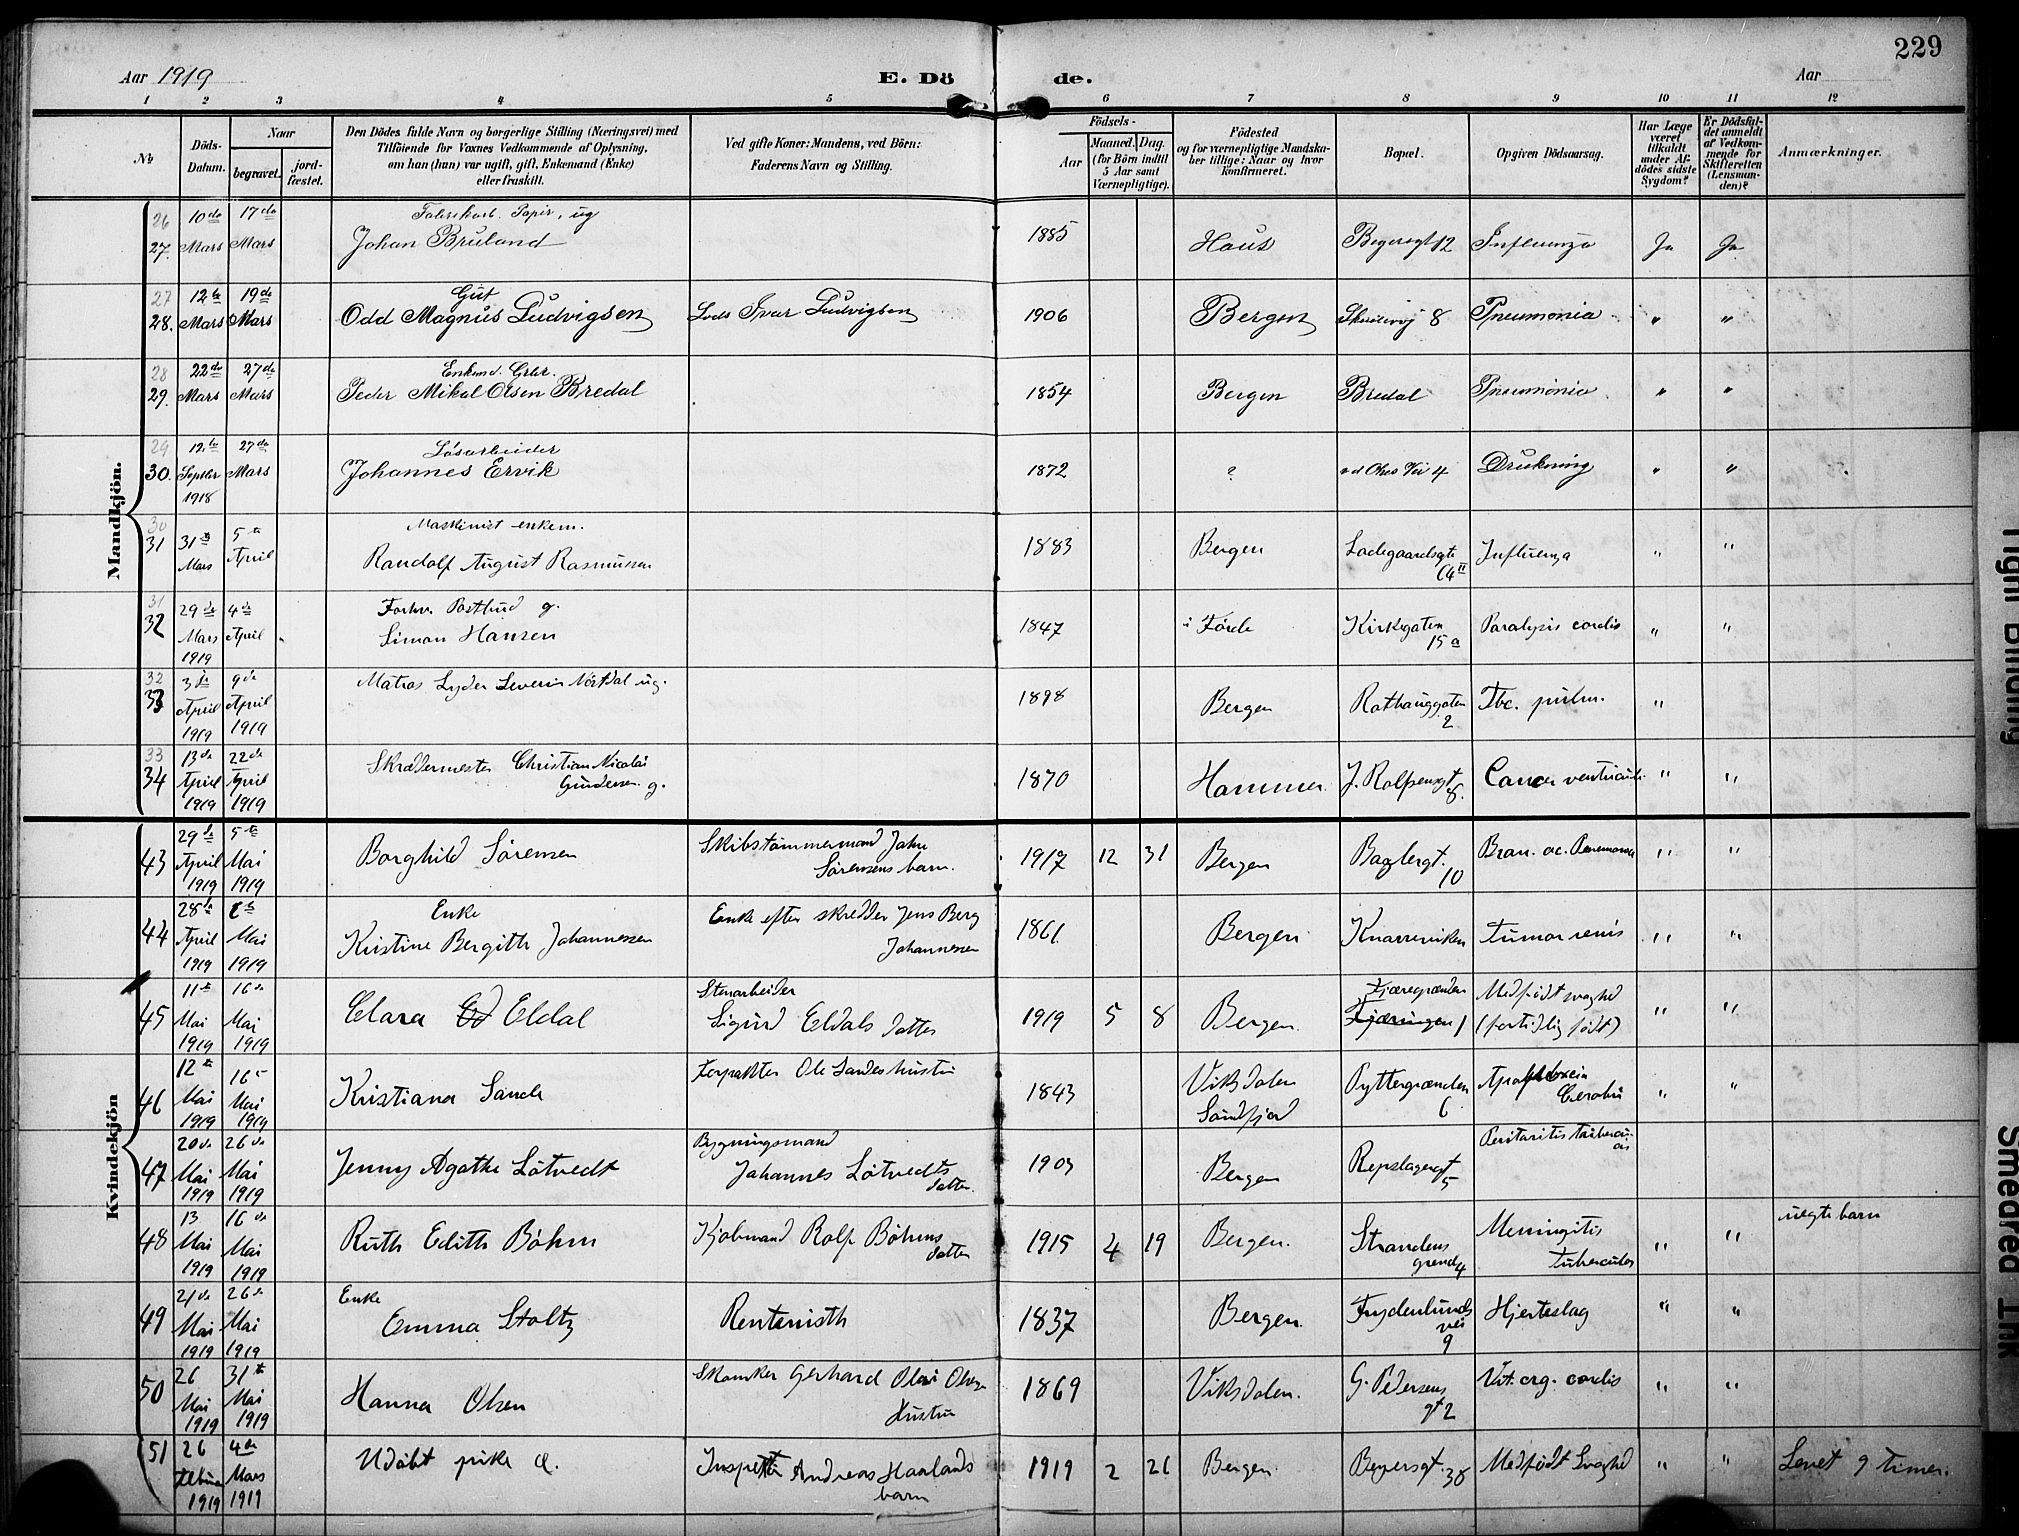 229
Aar 1919
E. Dö
de.
Aar
1 2 3 4 5 6 7 8 9 10 11 12
№
Döds-
Datum.
Naar
begravet.
jord-
fæstet.
Den Dödes fulde Navn og borgerlige Stilling (Næringsvei) med
Tilföiende for Voxnes Vedkommende af Oplysning,
om han (hun) var ugift, gift, Enkemand (Enke)
eller fraskilt.
Ved gifte Koner: Mandens, ved Börn:
Faderens Navn og Stilling.
Födsels-
Aar
Maaned.
Dag.
(for Börn indtil
5 Aar samt
Værnepligtige).
Födested
og for værnepligtige Mandska-
ber tillige: Naar og hvor
konfirmeret.
Bopæl.
Opgiven Dödsaarsag.
Har Læge
været
tilkaldt
under Af-
dödes sidste
Sygdom?
Er Dödsfal-
det anmeldt
af Vedkom-
mende for
Skifteretten
(Lensman-
den)?
Anmærkninger.
Mandkjön.
26 10de 17de Papir, ug
27. Mars Mars Johan Bruland 1885 Haus 12 Influenza Ja Ja
27 12te 19de Gut
28. Mars Mars Odd Magnus Ludvigsen Ivar Ludvigsen 1906 Bergen 8 Pneumonia " "
28 22de 27de Enkemd.
29. Mars Mars Peder Mikal Olsen Bredal 1854 Bergen Bredal Pneumonia " "
29 12te 27de Løsarbeider
30. Septbr Mars Johannes Ervik 1872 ? 4 Drukning " "
1918
30 Maskinist enkem.
31 31te 5te Bergen Ladegaardsgt Influenza " "
Mars April Randolf August Rasmussen 1883 64 II
31 29de 4de Forhv. Postbud g.
32 Mars April Simon Hansen 1847 i Førde Kirkegaten Paralysis cordis " "
1919 15a
32 3de 9de Matros Lyder Severin ug.
33 April April 1898 Bergen Rothauggaten Tbc. pulm. "
1919 1919 2
33 13de 22de Skreddermester Christian Nicolai
34 April April Gundersen g. 1870 Hammer J. Rolfsensgt Cancer ventriculi " "
1919 1919 8.
Kvindekjön
29de 5te Skibstømmermand
43 April Mai Borghild Sørensen Sørensens barn. 1917 12 31 Bergen Baglergt. " "
1919 1919 10
28de Enke Enke efter skredder Jens Berg
44 April Mai Kristine Bergithe Johannessen Johannessen 1861 Bergen Knarreviken Tumor renis " "
1919 1919
11te 16de Stenarbeider Fjæregrænden Medfødt svaghed
45 Mai Mai Clara Eldal Sigurd Eldals datter 1919 5 8 Bergen. 1 (fortidlig født) " "
1919 1919
12te 16 Ole Sandes hustru
46 Mai Mai Kristiana Sande 1843 Viksdalen Pyttergrænden Apoplexia " "
1919 1919 Søndfjord 6 Cerebri
20de 26de Bygningsmand Peritonitis
47 Mai Mai Jenny Agathe Løtvedt Johannes Løtvedts Bergen Repslagergt
1919 1919 datter. 5
13 16de Kjøbmand Rolf Bøhms Meningitis uegte barn
48 Mai Mai Ruth Edith Bøhm datter 1915 4 19 Bergen. Strandens " "
1919 1919 grend 4
21de 26de Enke
49 Mai Mai Emma Stoltz 1837 Bergen. Frydenlunds Hjerteslag " "
1919 1919 vei 9
26 31te Gerhard Olai Olsens
50 Mai Mai Hanna Olsen Hustru 1869 Viksdalen. G. Pedersens Vit. org. cordis " "
1919 1919 gt 2
51 26 4de Udøbt pike Andreas Haalands 1919 2 26 Bergen 38 Medfødt Svaghed " " Levet 9 timer.
Mars barn
1919 1919
Tight Binding
Smeared Ink